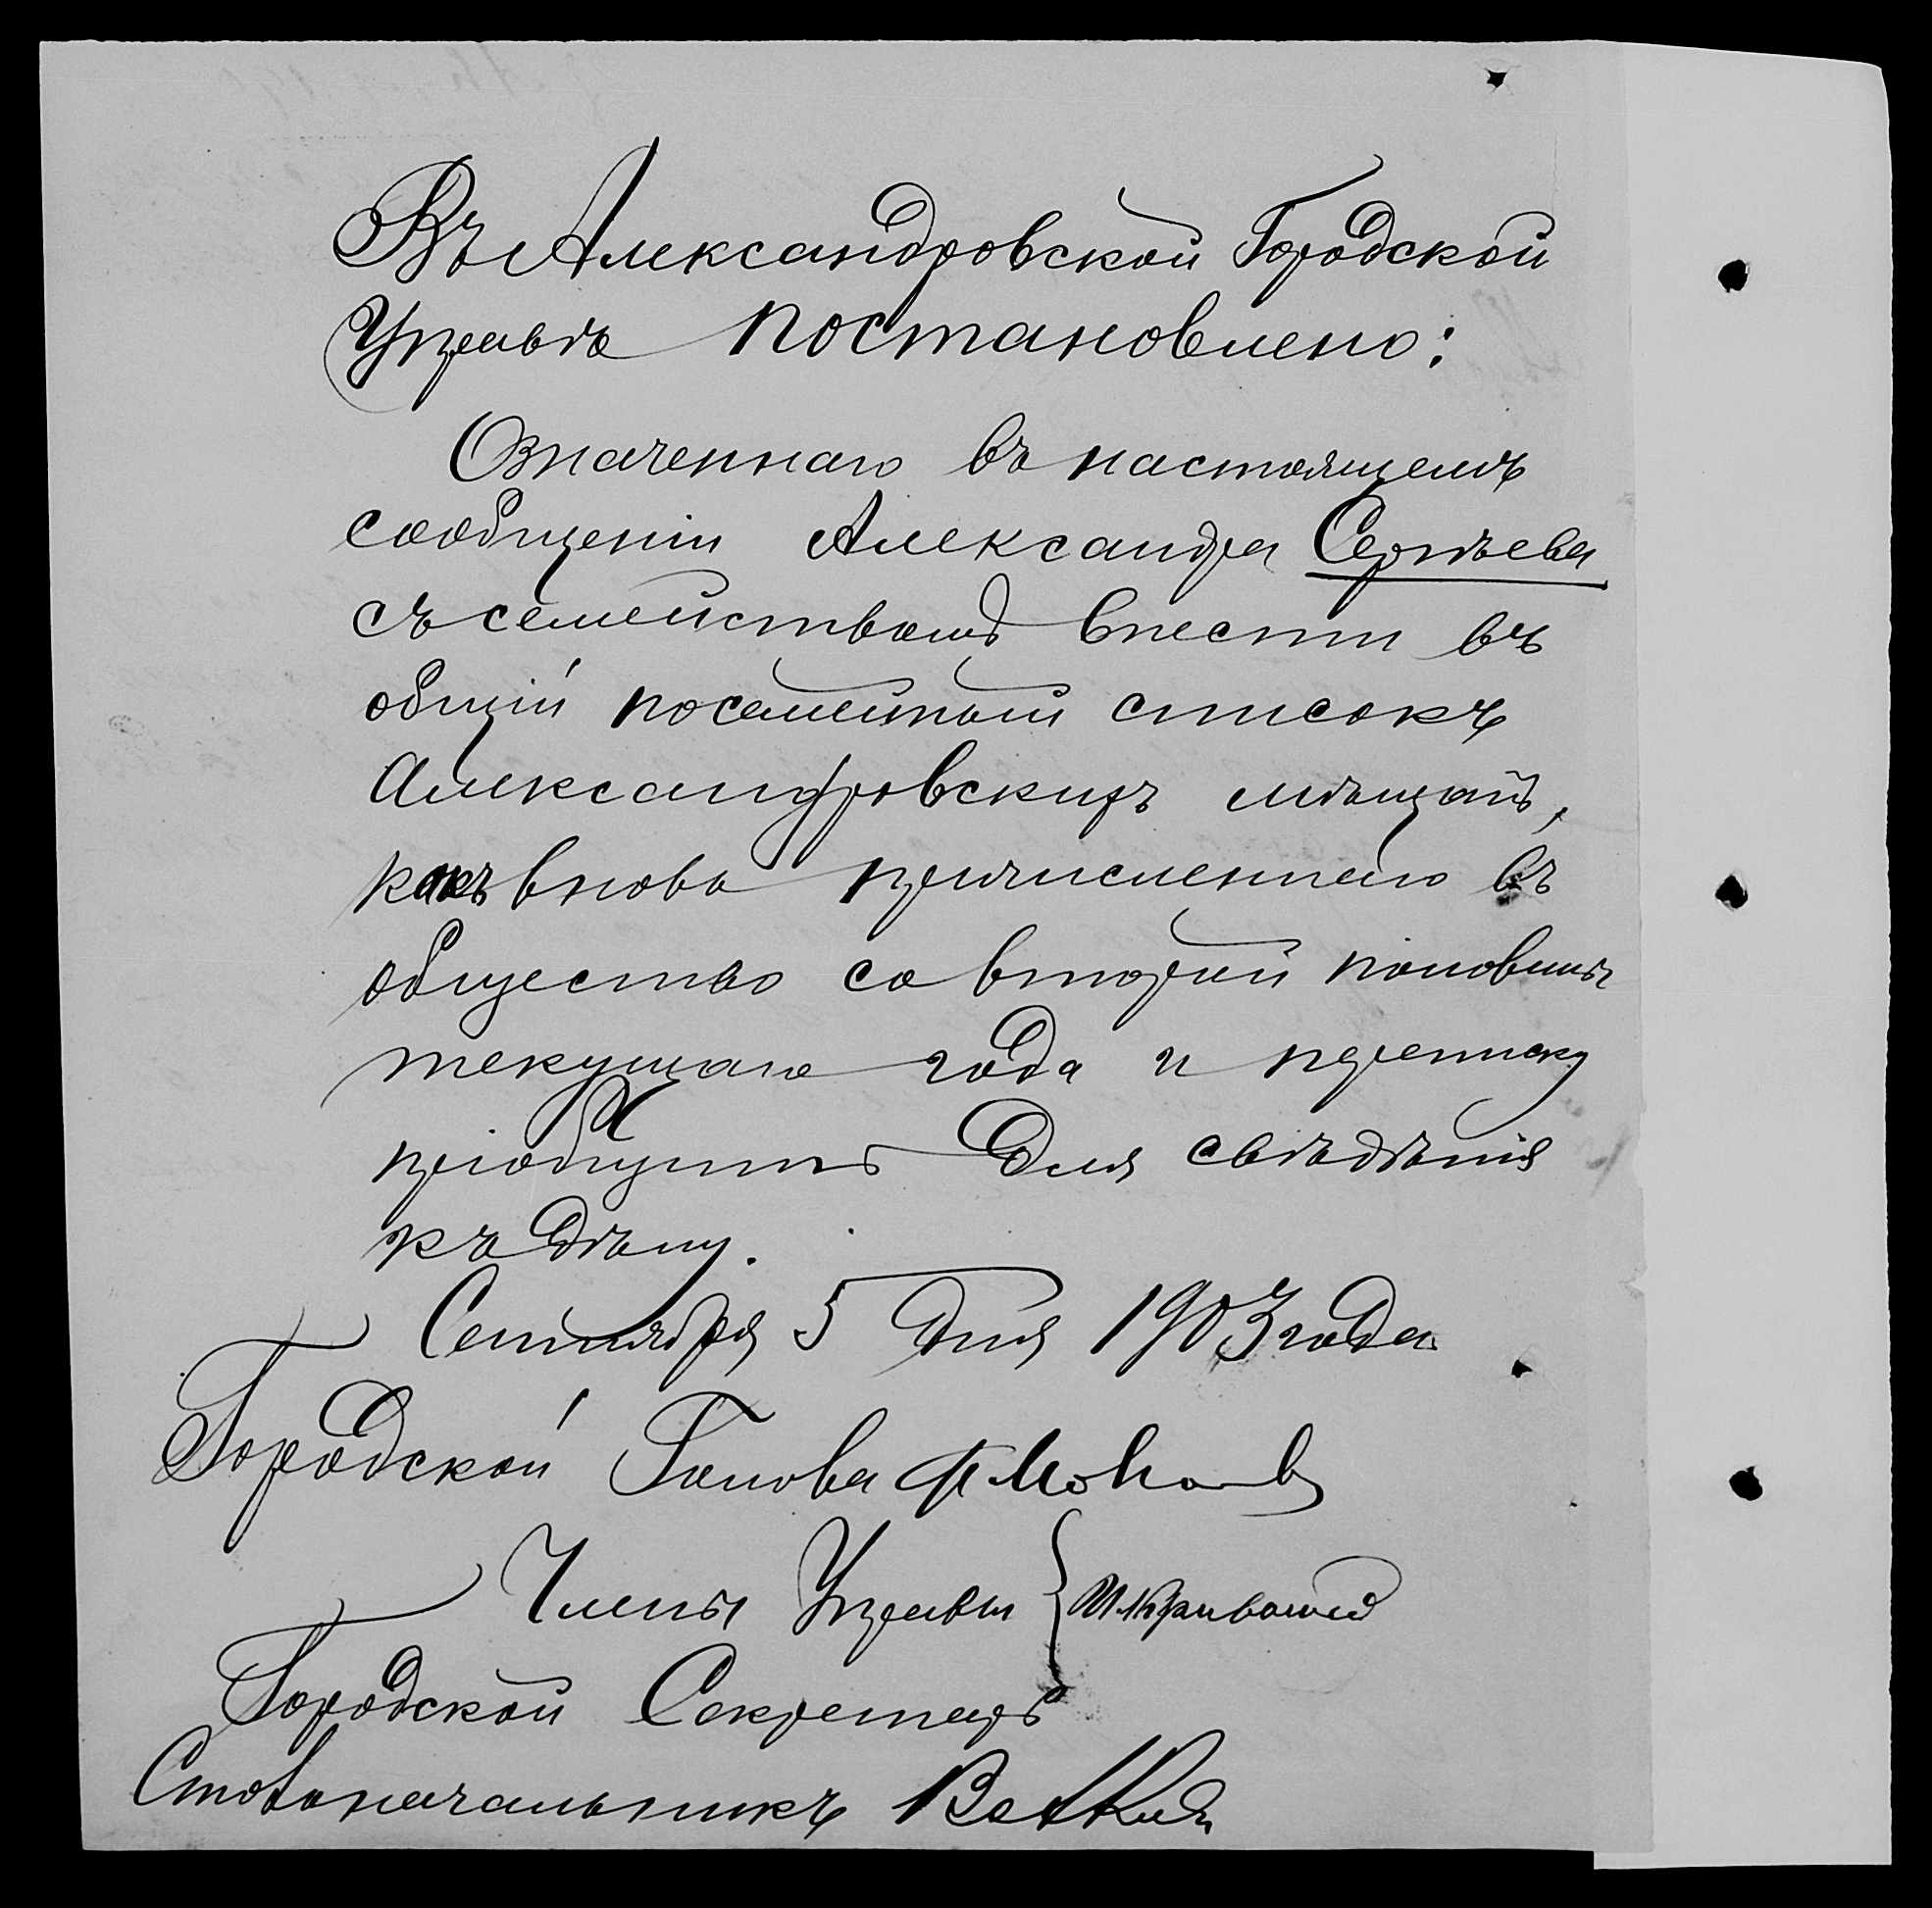 Въ Александровской Городской
Управѣ постановлено:
Означеннаго въ настоящемъ
сообщеніи Александра Сергѣева
съ семействомъ внести въ
общій посемейный списокъ
Александровскихъ мѣщанъ,
какъ вновь причисленнаго въ
общество со второй половины
текущаго года и переписку
пріобщить для свѣдѣнія
къ дѣлу.
Сентября 5 дня 1903 года
Городской Голова Ф.
Члены Управы {
Городской Секретарь
Столоначальникъ